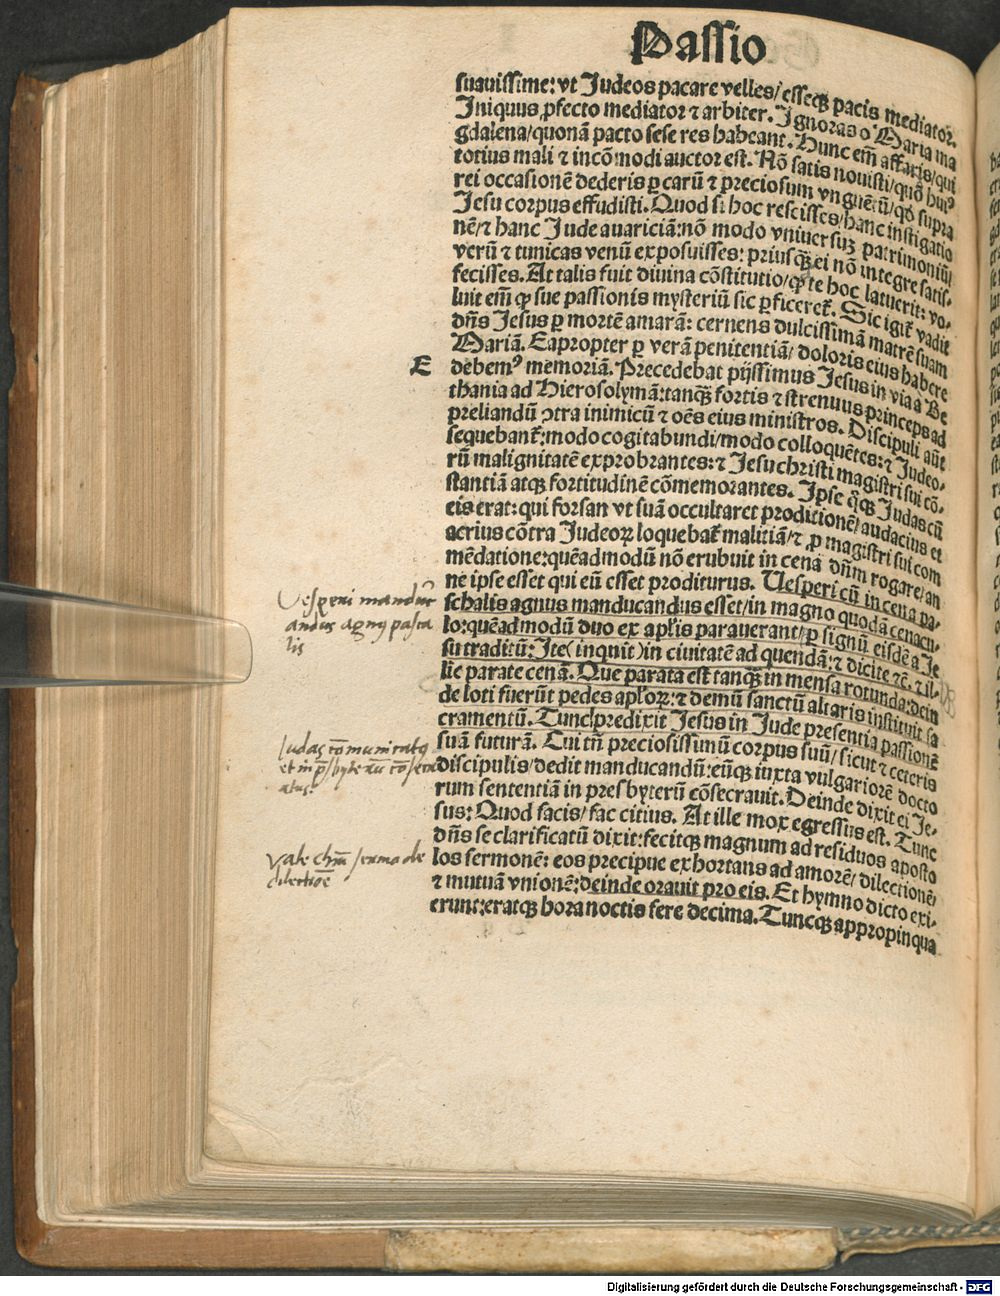 Passio
suauissime: vt Judeos pacare velles/ esseqꝫ pacis mediator.
Iniquus ꝓfecto mediator ⁊ arbiter. Ignoras o Maria ma
gdalena/ quonã pacto sese res habeant. Hunc em̃ affaris/ qui
totius mali ⁊ incõmodi auctor est. Nõ satis nouisti/ quõ huiꝰ
rei occasionẽ dederis ꝑ carũ ⁊ preciosum vnguẽtũ/ qd̓ supra
Jesu corpus effudisti. Quod si hoc rescisses/ hanc instigatio
nẽ/ ⁊ hanc Jude auariciã: nõ modo vniuersuꝫ patrimoniũ/
verũ ⁊ tunicas venũ exposuisses: priusqꝫ ei nõ integre satis⸗
fecisses. At talis fuit diuina cõstitutio/ ꝙ te hoc latuerit: vo⸗
luit em̃ ꝙ sue passionis mysteriũ sic ꝑficeret̃. Sic igit̃ vadit
dñs Jesus ꝑ mortẽ amarã: cernens dulcissimã matrẽ suam
Mariã. Eapropter ꝑ verã penitentiã/ doloris eius habere
E debemꝰ memoriã. Precedebat pijssimus Jesus in via a Be
thania ad Hierosolymã: tanqꝫ fortis ⁊ strenuus princeps ad
preliandũ ꝯtra inimicũ ⁊ oẽs eius ministros. Discipuli aũt
sequebant̃: modo cogitabundi/ modo colloquẽtes: ⁊ Judeo⸗
rũ malignitatẽ exprobrantes: ⁊ Jesu christi magistri sui cõ⸗
stantiã atqꝫ fortitudinẽ cõmemorantes. Ipse qͦqꝫ Judas cũ
eis erat: qui forsan vt suã occultaret proditionẽ/ audacius et
acrius cõtra Judeoꝝ loquebat̃ malitiã/ ⁊ ꝓ magistri sui com
mẽdatione: quẽadmodũ nõ erubuit in cena dñm rogare/ an
ne ipse esset qui eũ esset proditurus. Uesperi cũ in cena pa⸗
schalis agnus manducandus esset/ in magno quodã cenacu⸗
lo: quẽadmodũ duo ex apl̃is parauerant/ ꝑ signũ eisdẽ a Je
su traditũ: Ite (inquit) in ciuitatẽ ad quendã: ⁊ dicite ⁊c̃. ⁊ il⸗
lic parate cenã. Que parata est tanqꝫ in mensa rotunda: dein
de loti fuerũt pedes apl̃oꝝ: ⁊ demũ sanctũ altaris instituit sa
cramentũ. Tunc predixit Jesus in Jude presentia passionẽ
suã futurã. Cui tñ preciosissimũ corpus suũ/ sicut ⁊ ceteris
discipulis/ dedit manducandũ: eũqꝫ iuxta vulgariorẽ docto
rum sententiã in presbyterũ cõsecrauit. Deinde dixit ei Je⸗
sus: Quod facis/ fac citius. At ille mox egressus est. Tunc
dñs se clarificatũ dixit: fecitqꝫ magnum ad residuos aposto
los sermonẽ: eos precipue exhortans ad amorẽ/ dilectionẽ/
⁊ mutuã vnionẽ: deinde orauit pro eis. Et hymno dicto exi⸗
erunt: eratqꝫ hora noctis fere decima. Tuncqꝫ appropinqua
Vesperi manduc
andus agnus pasca
lis
Judas cõmunicatꝰ
et in p̃sbyterũ cõsecr
atus.
Vale chr̃i sermo de
dilectiõe
Digitalisierung gefördert durch die Deutsche Forschungsgemeinschaft - DFG